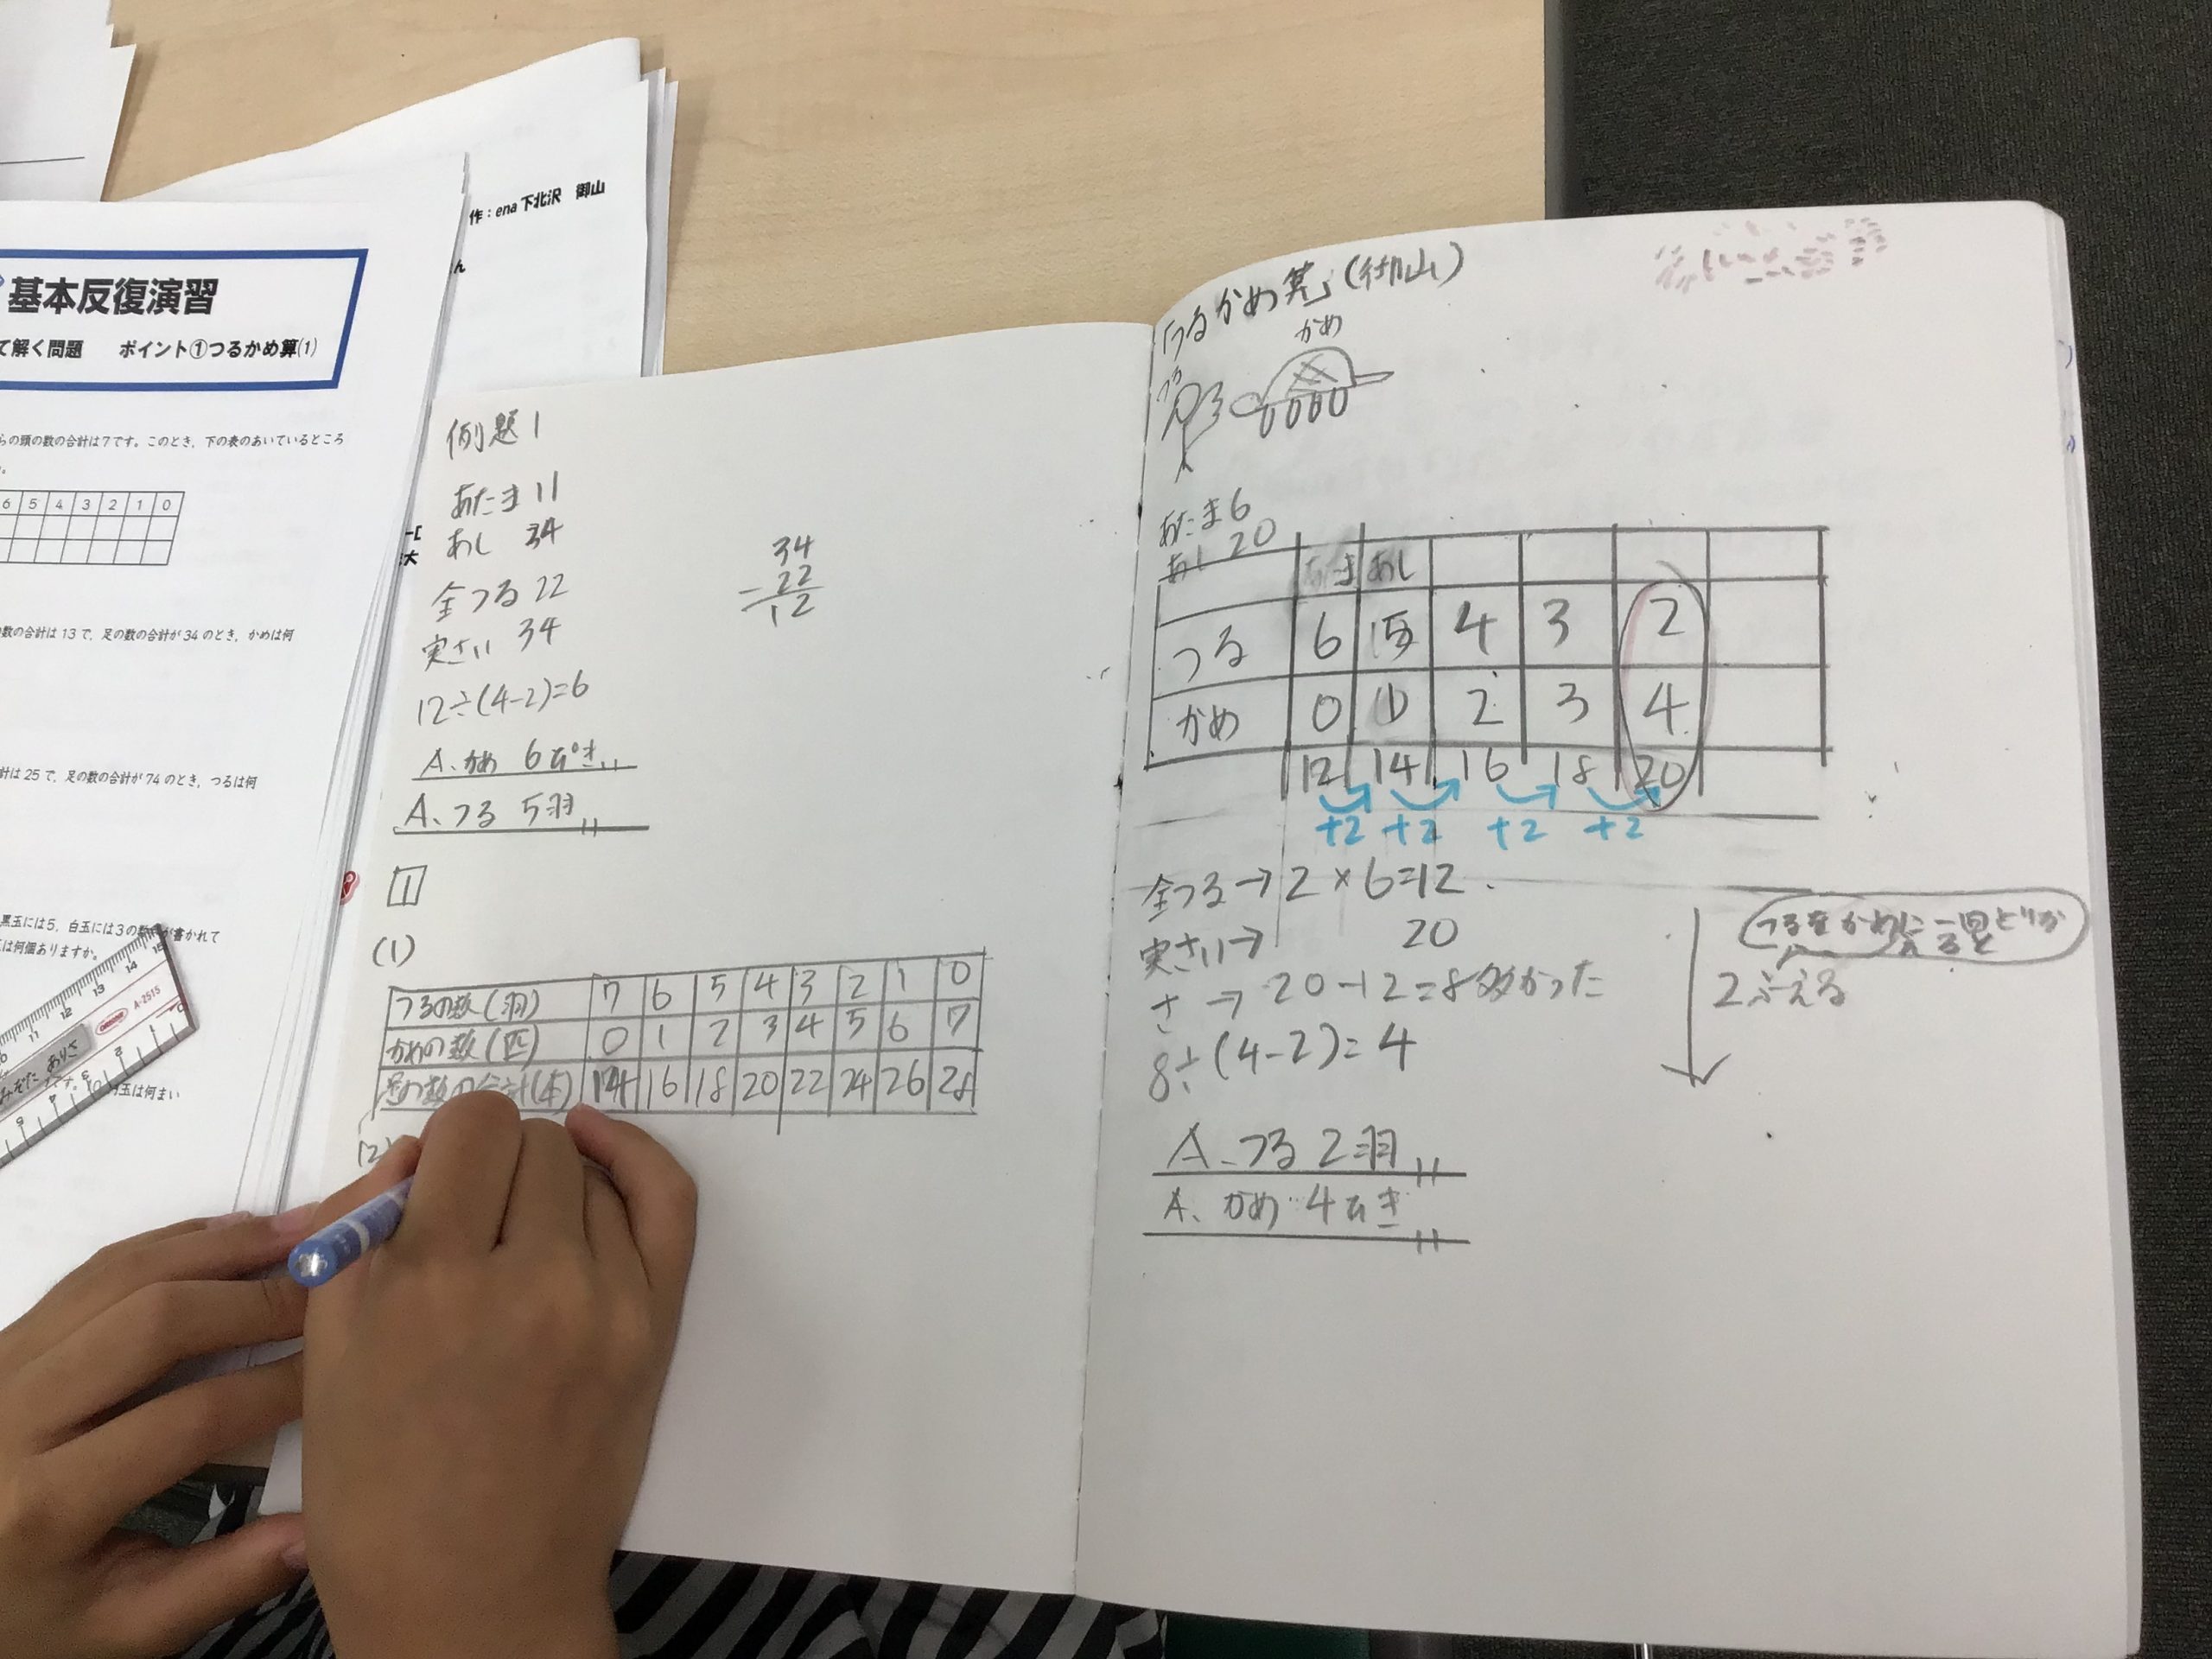 作：ena下北沢 御山
ん
基本反復演習
て解く問題 ポイント①つるかめ算(1)
らの頭の数の合計は7です。このとき、下の表のあいているところ
6 5 4 3 2 1 0
数の合計は13で、足の数の合計が34のとき、かめは何
計は25で、足の数の合計が74のとき、つるは何
黒玉には5、白玉には3の
書かれて
は何個ありますか。
玉は何まい
A-2515
例題1
あたま 11
あし 34
全つる 22
実さい 34
12÷(4-2)=6
A、かめ 6ぴき
A、つる 5羽
34
-22
12
1
(1)
つるの数(羽) 7 6 5 4 3 2 1 0
かめの数(匹) 0 1 2 3 4 5 6 7
足の数の合計(本) 14 16 18 20 22 24 26 28
(2)
つるかめ算(御山)
かめ
つる
あたま6
あし 20
あし
つる 6 5 4 3 2
かめ 0 1 2 3 4
12 14 16 18 20
+2 +2 +2 +2
全つる→2×6=12
実さい→ 20
さ → 20-12=8多かった
8÷(4-2)=4
2ふえる
A、つる 2羽
A、かめ 4ひき